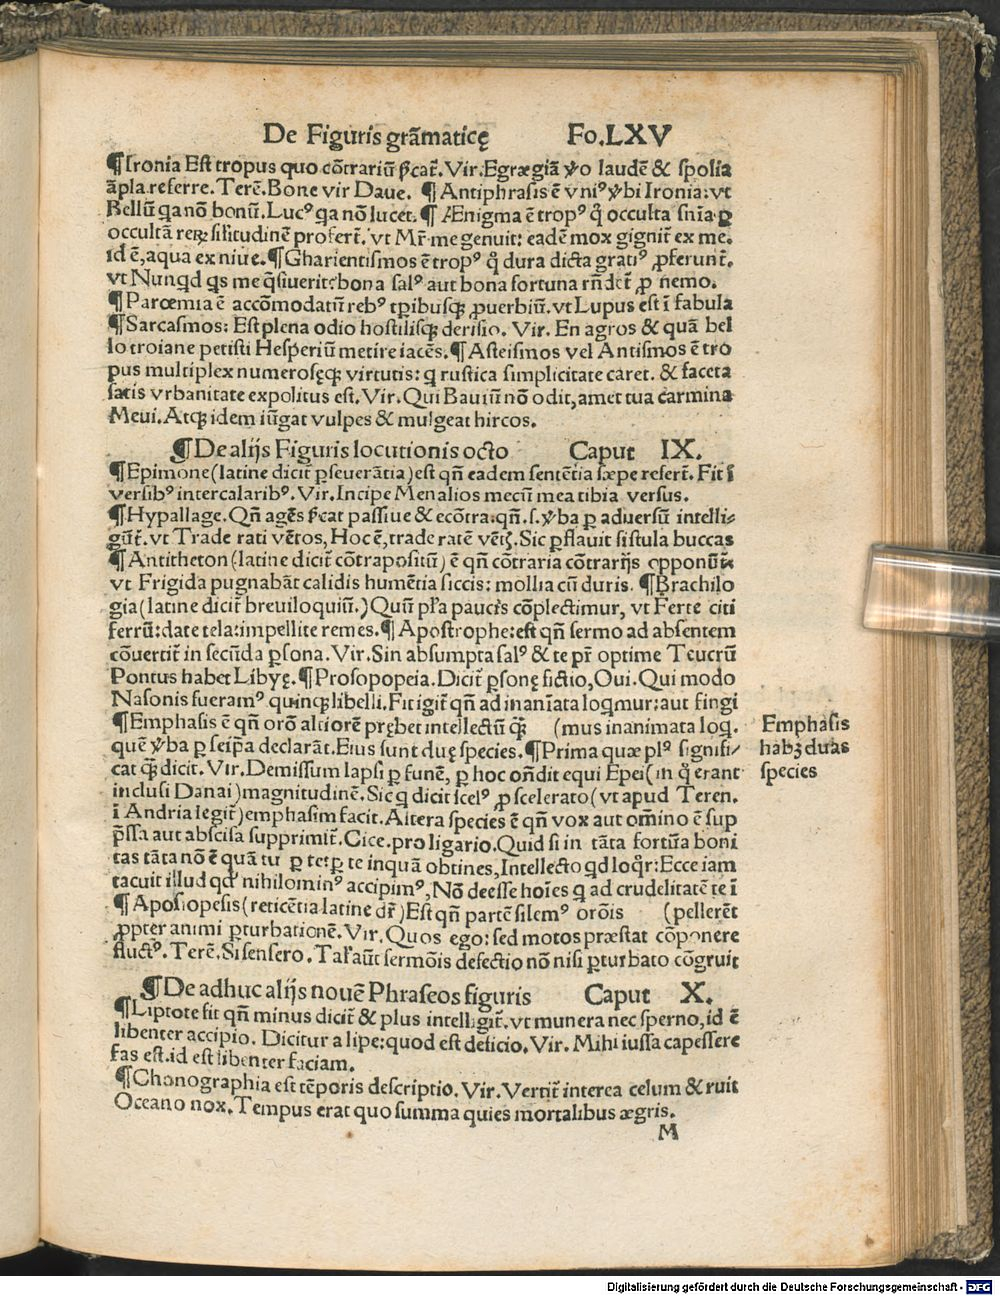 De Figuris grãmaticę Fo.LXV
¶Ironia Est tropus quo cõtrariũ p̃cat̃. Vir. Egrægiã ỹo laudẽ & spolia
ãpla referre. Terẽ. Bone vir Daue. ¶ Antiphrasis ẽ vniꝰ ỹbi Ironia: vt
Bellũ qa nõ bonũ. Lucꝰ qa nõ lucet. ¶ Ænigma ẽ tropꝰ q̊ occulta sñia ꝑ
occultã reꝝ silitudinẽ profert̃. vt Mr̃ me genuit: eadẽ mox gignit̃ ex me.
id ẽ, aqua ex niue. ¶ Gharientismos ẽ tropꝰ q̊ dura dicta gratiꝰ ꝓferunt̃.
vt Nunqd qs me q̃siuerit: bona salꝰ aut bona fortuna rñdet̃ ꝓ nemo.
¶ Parœmia ẽ accõmodatũ rebꝰ tp̃ibusqꝫ ꝓuerbiũ. vt Lupus est ĩ fabula
¶ Sarcasmos: Est plena odio hostilisqꝫ derisio. Vir. En agros & quã bel
lo troiane petisti Hesperiũ metire iacẽs. ¶ Asteismos vel Antismos ẽ tro
pus multiplex numerosęqꝫ virtutis: q rustica simplicitate caret. & faceta
satis vrbanitate expolitus est. Vir. Qui Bauiũ nõ odit, amet tua carmina
Meui. Atqꝫ idem iũgat vulpes & mulgeat hircos.
¶ De alijs Figuris locutionis octo Caput IX.
¶ Epimone (latine dicit̃ ꝑseuerãtia) est qñ eadem sentẽtia sæpe refert̃. Fit ĩ
versibꝰ intercalaribꝰ. Vir. Incipe Menalios mecũ mea tibia versus.
¶ Hypallage. Qñ agẽs p̃cat passiue & ecõtra. qñ. s. ỹba ꝑ aduersũ intelli⸗
gũt̃. vt Trade rati vẽtos, Hoc ẽ, trade ratẽ vẽtꝭ. Sic ꝑflauit fistula buccas
¶ Antitheton (latine dicit̃ cõtrapositũ) ẽ qñ cõtraria cõtrarijs opponũt̃
vt Frigida pugnabãt calidis humẽtia siccis: mollia cũ duris. ¶ Brachilo
gia (latine dicit̃ breuiloquiũ.) Quũ pl̃a paucis cõplectimur, vt Ferte citi
ferrũ: date tela: impellite remes. ¶ Apostrophe: est qñ sermo ad absentem
cõuertit̃ in secũda ꝑsona. Vir. Sin absumpta salꝰ & te pr̃ optime Teucrũ
Pontus habet Libyę. ¶ Prosopopeia. Dicit̃ ꝑsonę fictio, Oui. Qui modo
Nasonis fueramꝰ quinqꝫ libelli. Fit igit̃ qñ ad inanĩata loqmur: aut fingi
¶ Emphasis ẽ qñ orõ altiorẽ prębet intellectũ q̃ꝫ (mus inanimata loq.
quẽ ỹba ꝑ seip̃a declarãt. Eius sunt duę species. ¶ Prima quæ plꝰ signifi⸗
cat q̃ꝫ dicit. Vir. Demissum lapsi ꝑ funẽ, ꝑ hoc oñdit equi Epei (in q̊ erant
inclusi Danai) magnitudinẽ. Sic q dicit scelꝰ ꝓ scelerato (vt apud Teren.
ĩ Andria legit̃) emphasim facit. Altera species ẽ qñ vox aut om̃ino ẽ sup
p̃ssa aut abscisa supprimit̃. Cice. pro ligario. Quid si in tãta fortũa boni
tas tãta nõ ẽ quã tu ꝑ te: ꝑ te inquã obtines, Intellecto qd loq̊r: Ecce iam
tacuit illud qd̃ nihilominꝰ accipimꝰ, Nõ deesse hoĩes q ad crudelitatẽ te ĩ
¶ Aposiopesis (reticẽtia latine dr̃) Est qñ partẽ silemꝰ orõis (pellerẽt
ꝓpter animi ꝑturbationẽ. Vir. Quos ego: sed motos præstat cõponere
fluctꝰ. Terẽ. Si sensero. Tal̃ aũt sermõis defectio nõ nisi ꝑturbato cõgruit
¶ De adhuc alijs nouẽ Phraseos figuris Caput X.
¶ Liptote fit qñ minus dicit̃ & plus intelligit̃. vt munera nec sperno, id ẽ
libenter accipio. Dicitur a lipe: quod est deficio. Vir. Mihi iussa capessere
fas est. id est libenter faciam.
¶ Chonographia est tẽporis descriptio. Vir. Vertit̃ interea celum & ruit
Oceano nox. Tempus erat quo summa quies mortalibus ægris.
M
Emphasis
habꝫ duas
species
Digitalisierung gefördert durch die Deutsche Forschungsgemeinschaft - DFG